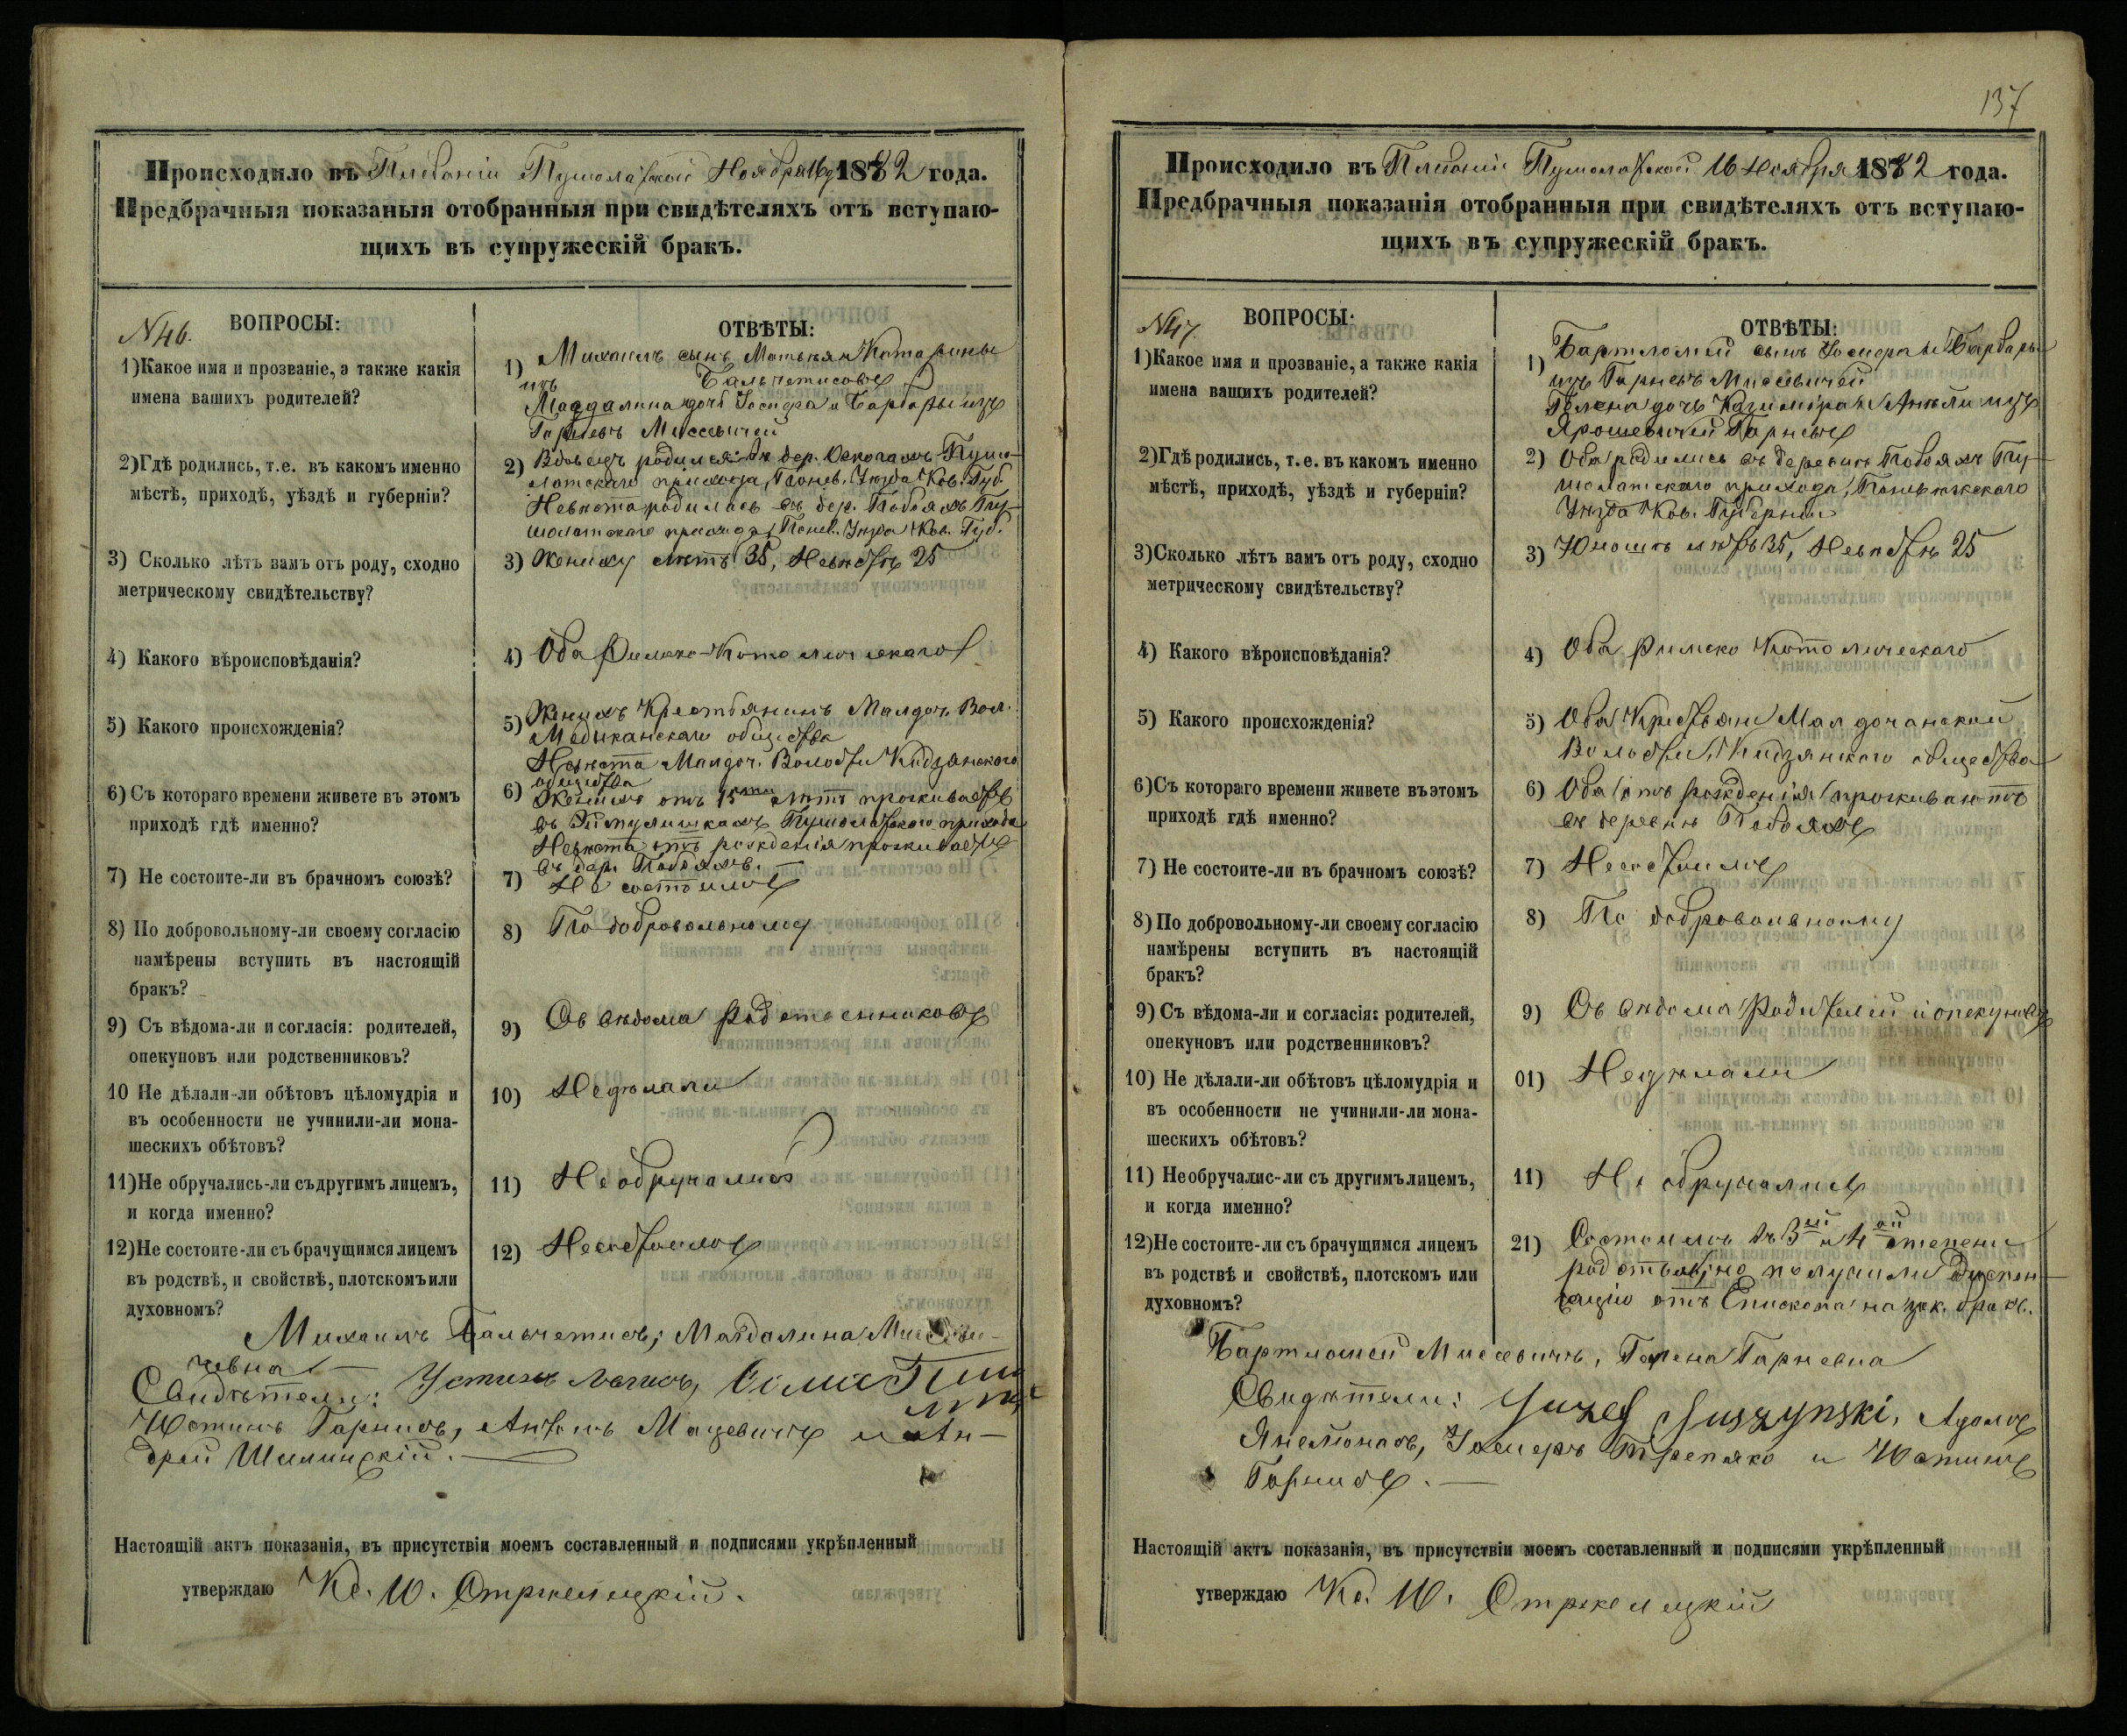 Происходило въ Плебаніи Пушолатской Ноября 16 д. 1882 года.
Предбрачныя показаныя отобранныя при свидѣтеляхъ отъ вступаю-
щихъ въ супружескій бракъ.
N 46. ВОПРОСЫ:
1) Какое имя и прозваніе, а также какія
имена вашихъ родителей?
2) Гдѣ родились, т.е. въ какомъ именно
мѣстѣ, приходѣ, уѣздѣ и губерніи?
3) Сколько лѣтъ вамъ отъ роду, сходно
метрическому свидѣтельству?
4) Какого вѣроисповѣданія?
5) Какого происхожденія?
6) Съ котораго времени живете въ этомъ
приходѣ гдѣ именно?
7) Не состоите-ли въ брачномъ союзѣ?
8) По добровольному-ли своему согласію
намѣрены вступить въ настоящій
бракъ?
9) Съ вѣдома-ли и согласія: родителей,
опекуновъ или родственниковъ?
10 Не дѣлали-ли обѣтовъ цѣломудрія и
въ особенности не учинили-ли мона-
шескихъ обѣтовъ?
11) Не обручались-ли съ другимъ лицемъ,
и когда именно?
12) Не состоите-ли съ брачущимся лицемъ
въ родствѣ, и свойствѣ, плотскомъ или
духовномъ?
ОТВѢТЫ:
1) Михаилъ сынъ Матвѣя и Катарины
изъ Бальчетисовъ
Магдалина дочь Іосифа и Барбары изъ
Гарневъ Мисевичей
2) Вдовецъ родился въ дер. Пушо-
латскаго прихода, Понев. Уѣзда Ков. Губ.
Невѣста родилась въ дер. Побояхъ Пу-
шолатскаго прихода, Понев. Уѣзда Ков. Губ.
3) Жениху лѣтъ 35, Невѣстѣ 25
4) Оба Римско-Католическаго
5) Женихъ Крестьянинъ Малдоч. Вол.
Медиканскаго общества
Невѣста Малдоч. Волости Кидзянскаго
общества
6) Женихъ отъ 15ти лѣтъ проживаетъ
въ Пушолатскаго прихода
Невѣста отъ рожденія проживаетъ
въ дер. Побояхъ.
7) Не состоимъ
8) По добровольному
9) Съ вѣдома родственниковъ
10) Не дѣлали
11) Не обручались
12) Не состоимъ
Михаилъ Бальчетисъ, Магдалина Мисеви-
чевна
Свидѣтели:
Юстинъ Гарнисъ, Антонъ Мацевичъ и Ан-
дрей Шилинскій.
Настоящій актъ показанія, въ присутствіи моемъ составленный и подписями укрѣпленный
утверждаю Кс. Ю. Стржелецкій.
137
Происходило въ Плебаніи Пушолатской 16 Ноября 1882 года.
Предбрачныя показанія отобранныя при свидѣтеляхъ отъ вступаю-
щихъ въ супружескій бракъ.
N 47. ВОПРОСЫ:
1) Какое имя и прозваніе, а также какія
имена вашихъ родителей?
2) Гдѣ родились, т. е. въ какомъ именно
мѣстѣ, приходѣ, уѣздѣ и губерніи?
3) Сколько лѣтъ вамъ отъ роду, сходно
метрическому свидѣтельству?
4) Какого вѣроисповѣданія?
5) Какого происхожденія?
6) Съ котораго времени живете въ этомъ
приходѣ гдѣ именно?
7) Не состоите-ли въ брачномъ союзѣ?
8) По добровольному-ли своему согласію
намѣрены вступить въ настоящій
бракъ?
9) Съ вѣдома-ли и согласія: родителей,
опекуновъ или родственниковъ?
10) Не дѣлали-ли обѣтовъ цѣломудрія и
въ особенности не учинили-ли мона-
шескихъ обѣтовъ?
11) Необручалис-ли съ другимъ лицемъ,
и когда именно?
12) Не состоите-ли съ брачущимся лицемъ
въ родствѣ и свойствѣ, плотскомъ или
духовномъ?
ОТВѢТЫ:
1) Бартломей сынъ Іосифа и Барбары
изъ Гарневъ Мисевичей
Гелена дочь Казиміра и Анели изъ
Ярошевичей Гарневъ
2) Оба родились въ деревнѣ Побояхъ Пу-
шолатскаго прихода, Поневѣжскаго
Уѣзда Ков. Губерніи
3) Юношѣ лѣтъ 35, Невѣстѣ 25
4) Оба Римско Католическаго
5) Оба Крестьяне Малдочанской
Волости, Кидзянскаго общества
6) Оба отъ рожденія проживаютъ
въ деревнѣ Побояхъ
7) Не состоимъ
8) По добровольному
9) Съ вѣдома Родителей и опекуновъ
01) Не дѣлали
11) Не обручались
21) Состоимъ въ 3ей и 4ой степени
родства, но получили диспен-
сацію отъ Епископа на зак. бракъ.
Бартломей Мисевичъ, Гелена Гарневна
Свидѣтели: Juzef Juszynski, Адамъ
Іосифъ Трепяко и Юстинъ
Гарнисъ.
Настоящій актъ показанія, въ присутствіи моемъ составленный и подписями укрѣпленный
утверждаю Кс. Ю. Стржелецкій